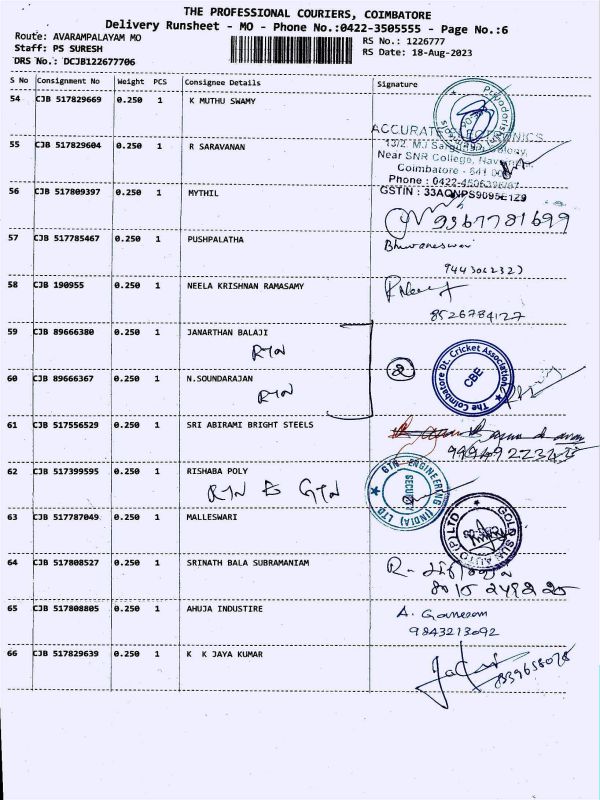 THE PROFESSIONAL COURIERS, COIMBATORE
Delivery Runsheet - MO - Phone No.:0422-3505555 - Page No.:6
Route: AVARAMPALAYAM MO
RS No.: 1226777
Staff: PS SURESH
RS Date: 18-Aug-2023
DRS No.: DCJB122677706
S No Consignment No Weight PCS Consignee Details Signature
54 CJB 517829669 0.250 1 K MUTHU SWAMY
55 CJB 517829604 0.250 1 R SARAVANAN
ACCURATE
13/2, MJ
Near SNR College,
Coimbatore - 641
Phone : 0422-
56 CJB 517809397 0.250 1 MYTHIL
GSTIN : 33AQNPS9095E1Z9
9367781699
57 CJB 517785467 0.250 1 PUSHPALATHA
Bhuvaneswari
58 CJB 190955 0.250 1 NEELA KRISHNAN RAMASAMY
8526784127
59 CJB 89666380 0.250 1 JANARTHAN BALAJI
RTN
2
The Coimbatore Dt. Cricket Association
CBE
60 CJB 89666367 0.250 1 N.SOUNDARAJAN
RTN
61 CJB 517556529 0.250 1 SRI ABIRAMI BRIGHT STEELS
62 CJB 517399595 0.250 1 RISHABA POLY
RTN GTN
GTN ENGINEERING (INDIA) LTD
SECURITY
63 CJB 517787049 0.250 1 MALLESWARI
GOLD SUN AUTO (P) LTD
64 CJB 517808527 0.250 1 SRINATH BALA SUBRAMANIAM
R-
65 CJB 517808805 0.250 1 AHUJA INDUSTIRE
A. Ganesan
9843213092
66 CJB 517829639 0.250 1 K K JAYA KUMAR